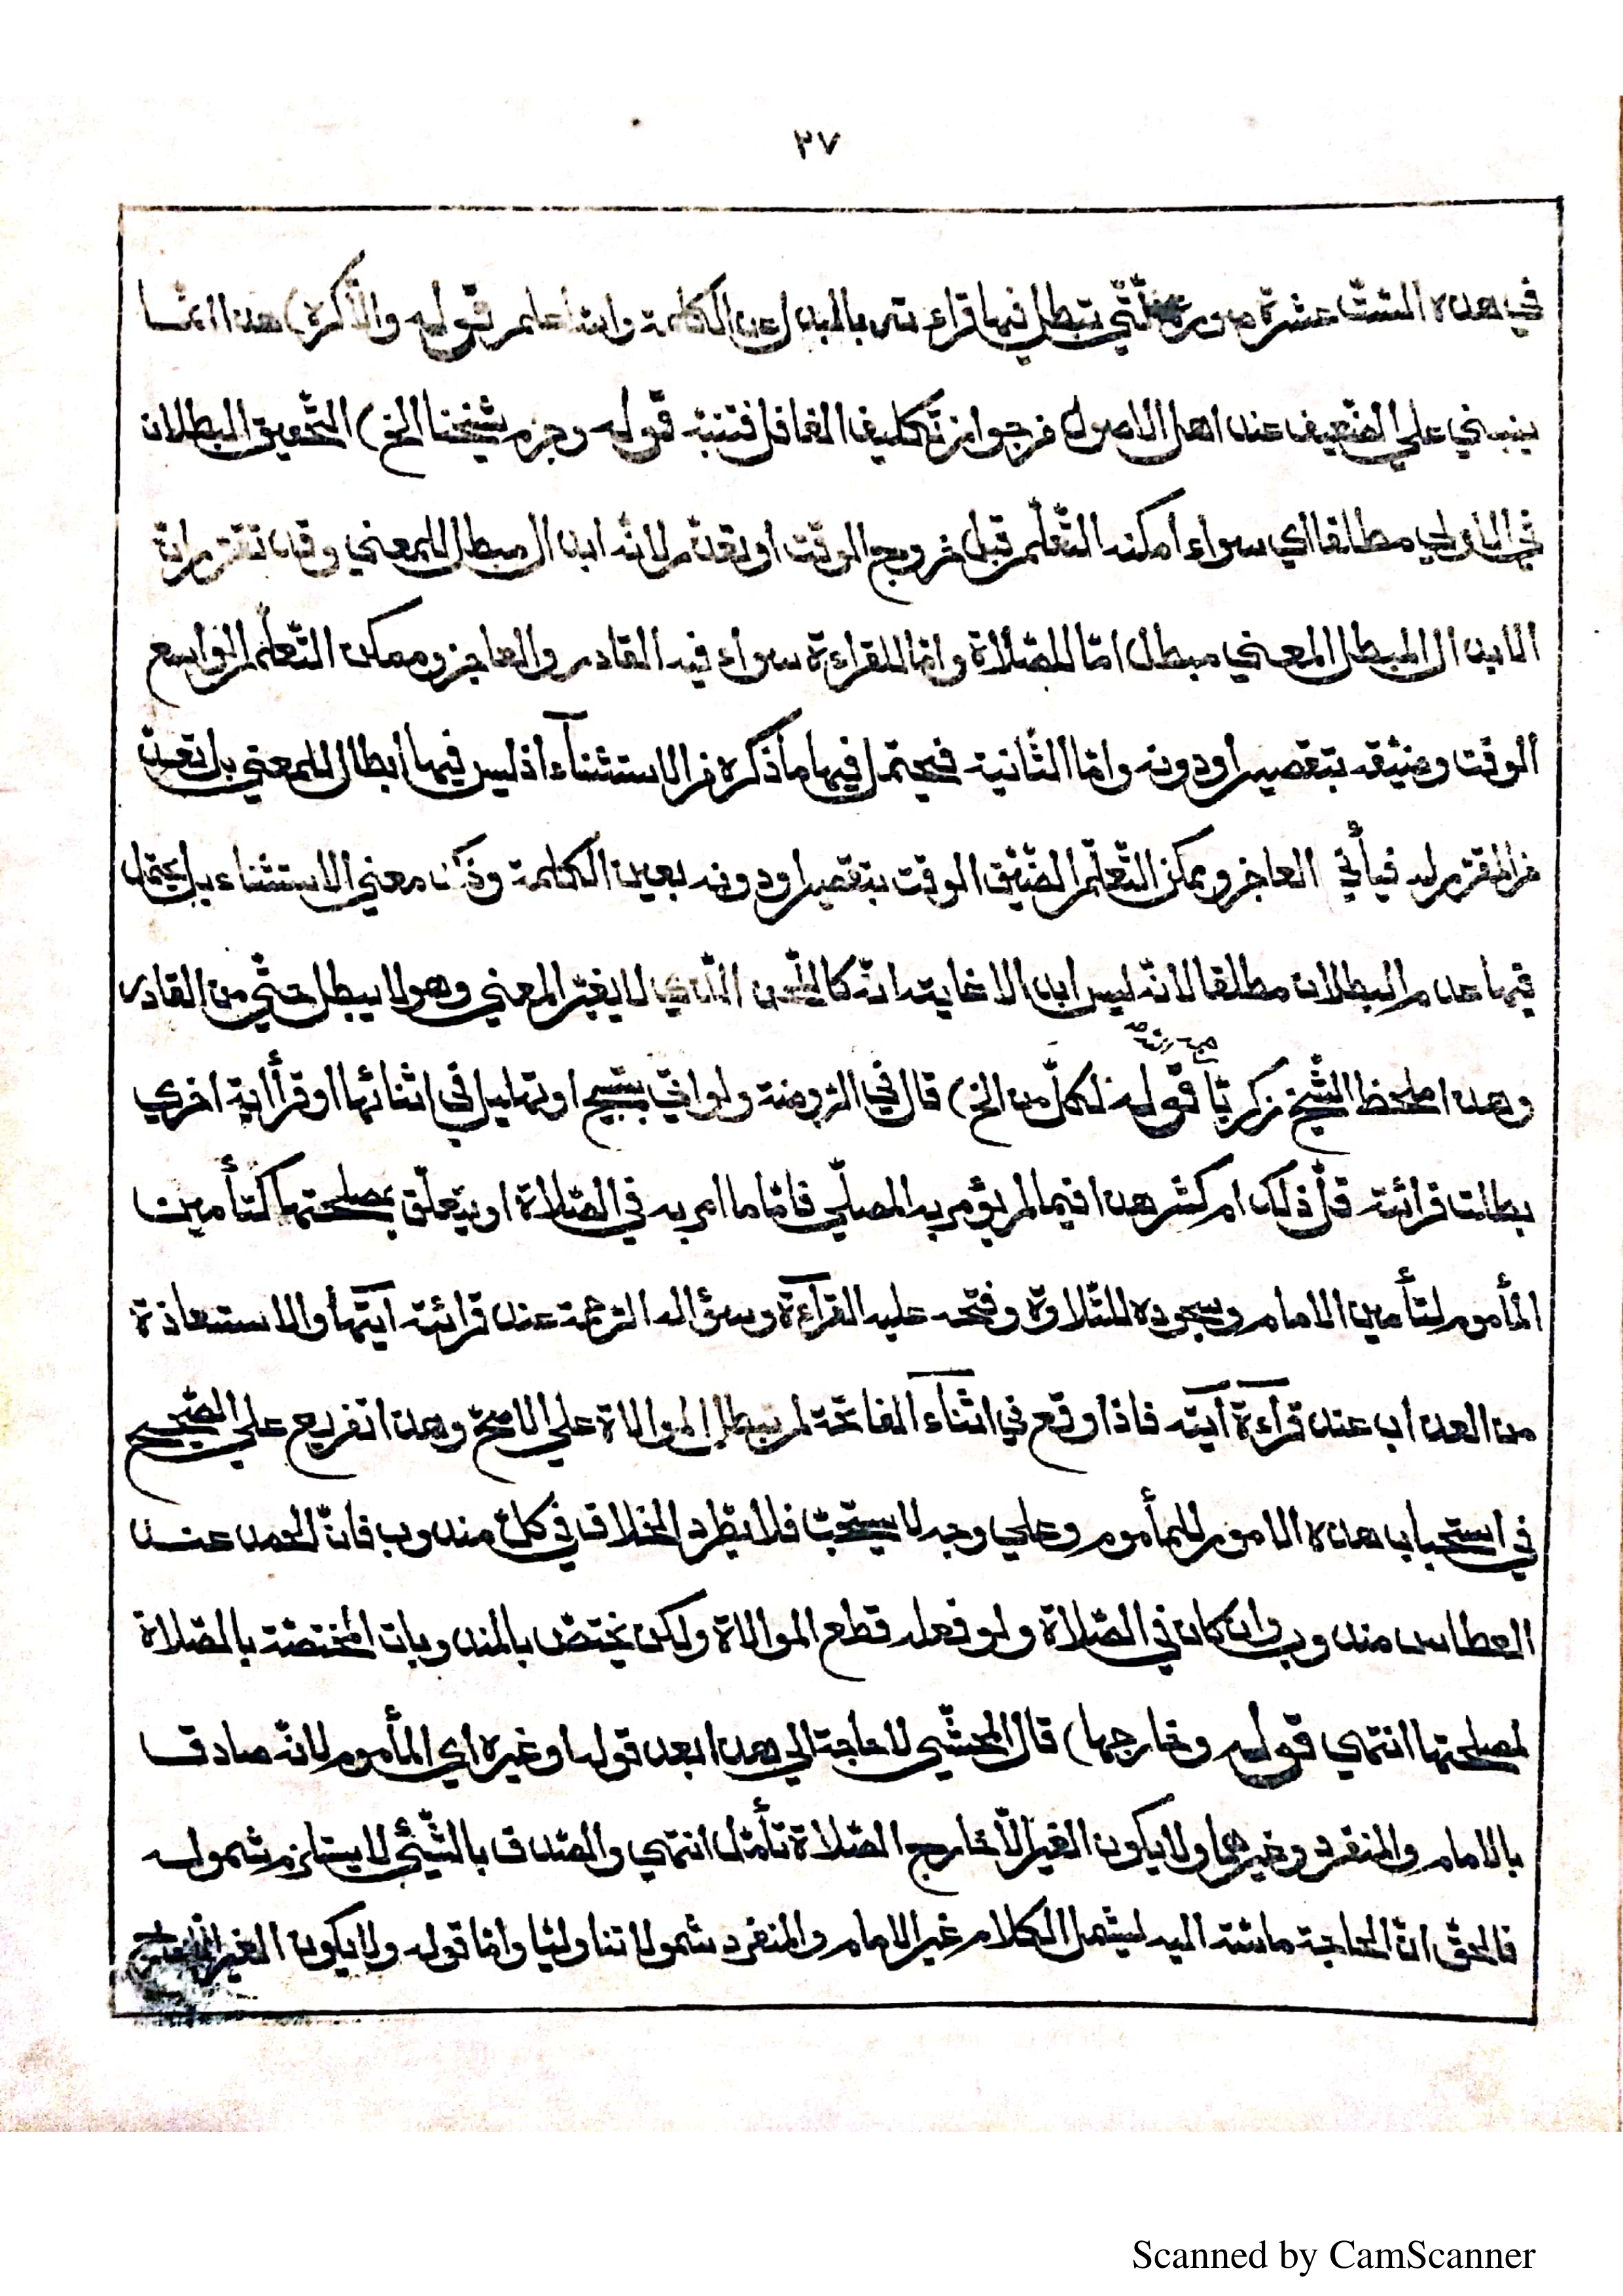 ٢٧
في هذه الستّ عشرة صورة الّتي تبطل فيها قراءته بالبدل عن الكلمة والله اعلم قوله والّاكره) هذا انّما
ينبني علي الضّعيف عند اهل الاصول من جواز تكليف الغافل فتنبّه قوله وجزم شيخنا الخ) التّحقيق البطلان
في الاولي مطلقا اي سواء امكنه التّعلّم قبل خروج الوقت او بعده لانّه ابدال مبطل للمعني وقد تقرّر انّ
الابدال المبطل المعني مبطل امّا للصّلاة وامّا للقراءة سواء فيه القادر والعاجز وممكن التّعلّم الواسع
الوقت وضيّقه بتقصير او دونه وامّا الثّانية فيحتمل فيها ما ذكره من الاستثناء اذ ليس فيها ابطال للمعني بل
من المقرّر له فيأتي العاجز وممكن التّعلّم الضّيّق الوقت بتقصير او دونه بعين الكلمة وذلك معني الاستثناء بل يحتمل
فيها عدم البطلان مطلقا لانّه ليس ابدالا غايته انّه كاللّحن الّذي لا يغيّر المعني وهو لا يبطل حتّي من القادر
وهذا ملحظ الشّيخ زكريّا قوله لكلّ من الخ) قال في الرّوضة ولو اتي بتسبيح او تهليل في اثنائها او قرأ اية اخري
بطلت قرائته قلّ ذلك ام كثر هذا فيما لم يؤمر به المصلّي فامّا ما امر به في الصّلاة او يتعلّق بمصلحتها كتأمين
المأموم لتأمين الامام وسجوده للتّلاوة وفتحه عليه القراءة وسؤاله الرّحمة عند قرائة آيتها والاستعاذة
من العذاب عند قراءة آيته فاذا وقع في اثناء الفاتحة لم تبطل الموالاة علي الاصحّ وهذا تفريع علي الصّحيح
في استحباب هذه الامور للمأموم وعلي وجه لا يستحبّ فلا يطّرد الخلاف في كلّ مندوب فانّ الحمد عند
العطاس مندوب وان كان في الصّلاة ولو فعله قطع الموالاة ولكن يختصّ بالمندوبات المختصّة بالصّلاة
لمصلحتها انتهي قوله وخارجها) قال المحشّي لا حاجة الي هذا بعد قوله او غيره اي المأموم لانّه صادق
بالامام والمنفرد وغيرهما ولا يكون الغير الّا خارج الصّلاة تأمّل انتهي والصّدق بالشّيئ لا يستلزم شموله
فالحقّ انّ الحاجة ماسّة اليه ليشمل الكلام غير الامام والمنفرد شمولا تناوليّا وامّا قوله ولا يكون الغير
Scanned by CamScanner